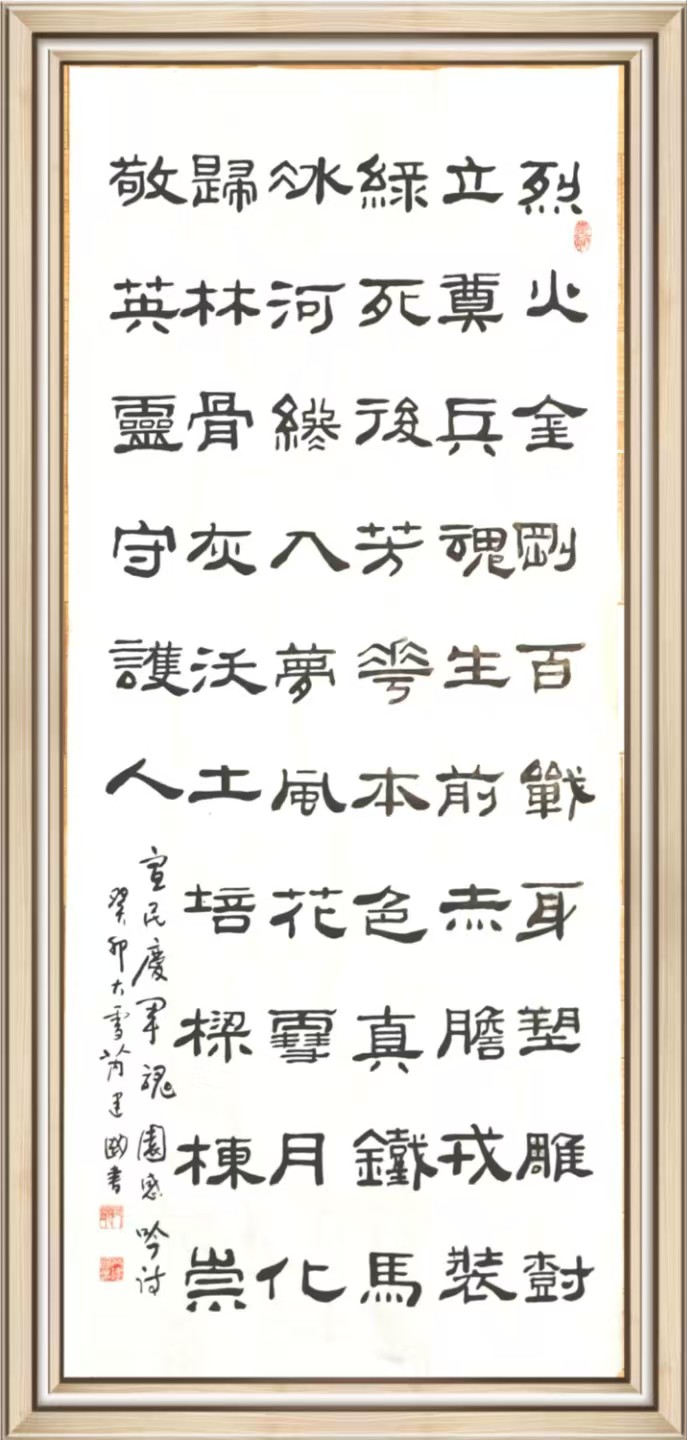 烈火金剛百戰身塑雕封
立奠兵魂生前赤膽戎裝
綠死後芳華本色真鐵馬
冰河終入夢風花雪月化
歸林骨灰沃土培樑棟崇
敬英靈守護人
宣民慶軍魂園感吟詩
癸卯大雪芮建國書